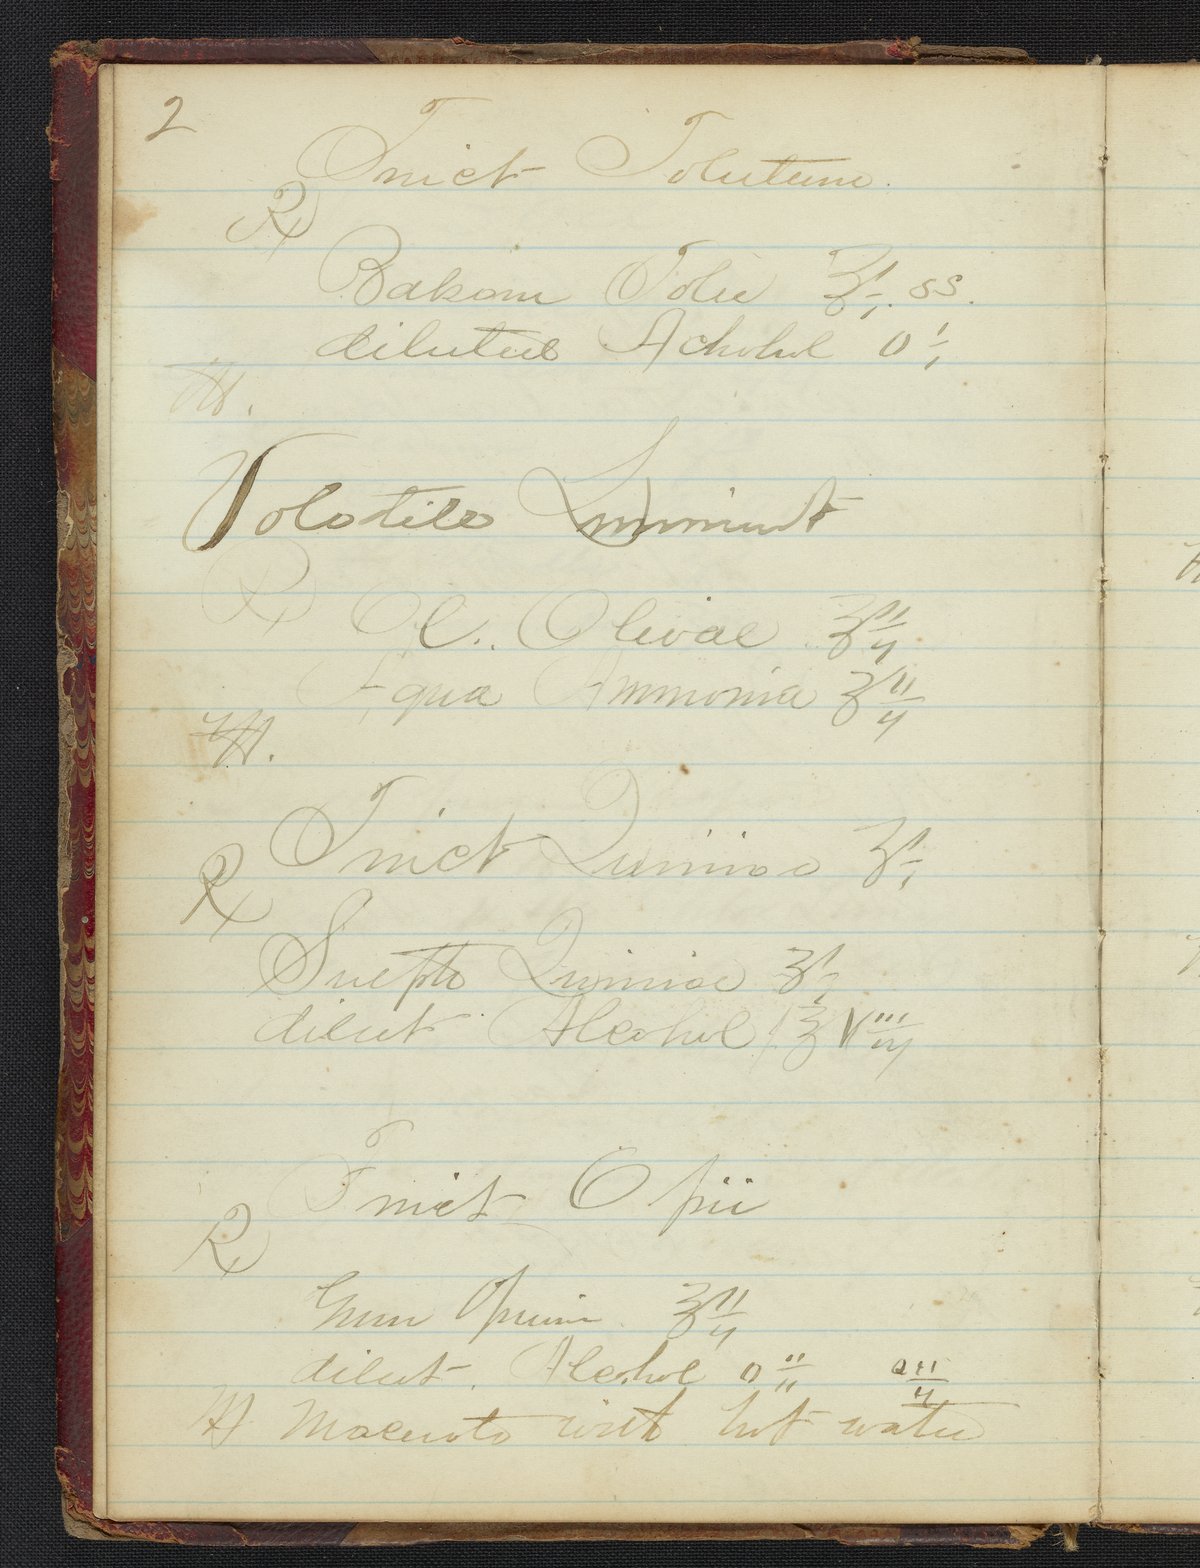 2
Tinct Tolutum.
℞
Balsom Tolu ℥i. ss.
dilutue Alchohol Oi
M.
Volatile Liniment
℞ Ol. Olivae ℥ii
Aqua Ammonia ℥ii
M.
Tinct Quinino ℥i
℞
Sulpto Quiniae ℥i
dilut Alcohol f℥ viii
Tinct Opii
℞
Gum Opium ℥ii
dilut. Alcohol Oii Oii
M Macerate with hot water